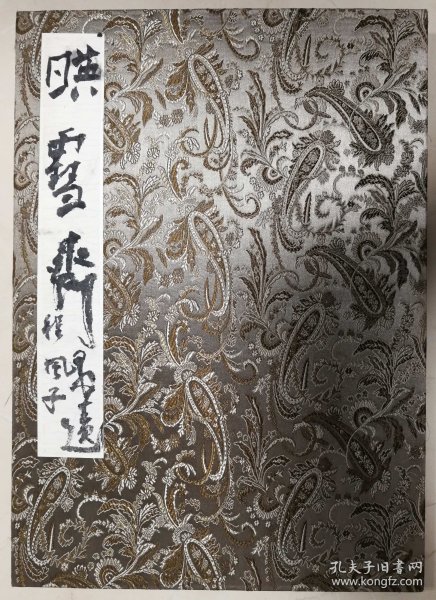 暎雪斋墨迹
程风子
孔夫子旧书网
www.kongfz.com